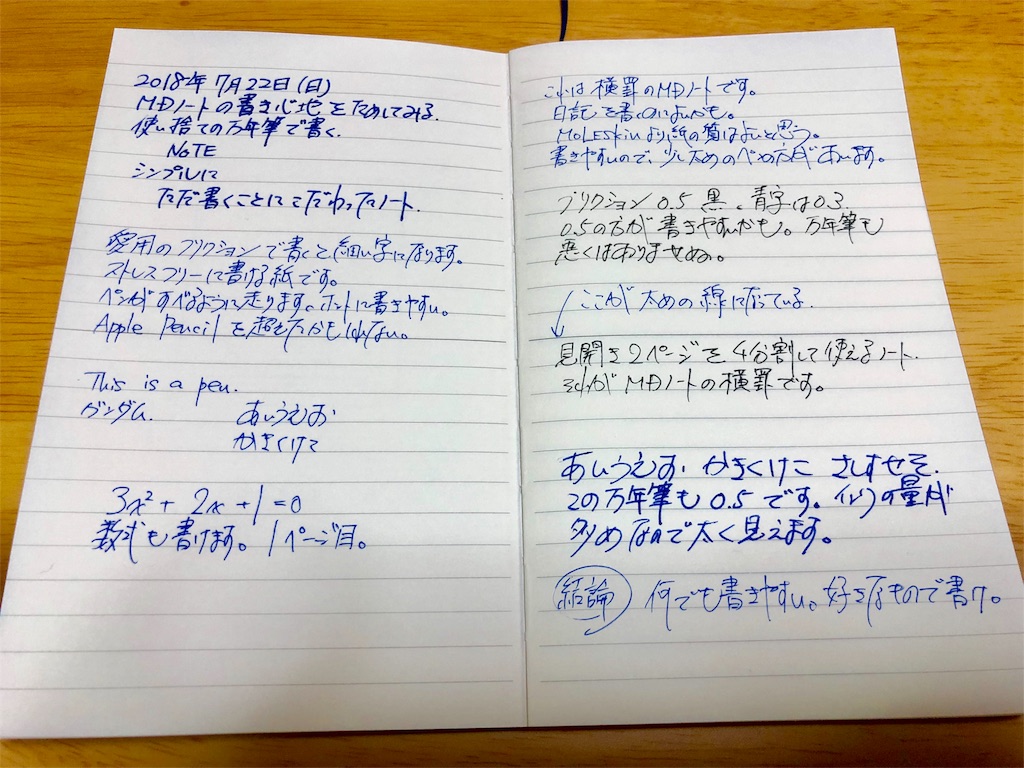 2018年7月22日(日)
MDノートの書き心地をためしてみる。
使い捨ての万年筆で書く。
NOTE
シンプルに
ただ書くことにこだわったノート。
愛用のフリクションで書くと細い字になります。
ストレスフリーに書ける紙です。
ペンがすべるように走ります。ホントに書きやすい。
Apple Pencilを超えたかもしれない。
This is a pen.
ガンダム
あいうえお
かきくけこ
3x²+2x+1=0
数式も書けます。1ページ目。
これは横罫のMDノートです。
日記を書くのによいかも。
MOLESkinより紙の質はよいと思う。
書きやすいので、少し太めのペンの方があいます。
フリクション0.5黒、青字は0.3
0.5の方が書きやすいかも。万年筆も
悪くはありませぬ。
ここが太めの線になっている。
見開き2ページを4分割して使えるノート。
それがMDノートの横罫です。
あいうえお かきくけこ さしすせそ
この万年筆も0.5です。インクの量が
多めなので太く見えます。
結論 何でも書きやすい。好きなもので書け。